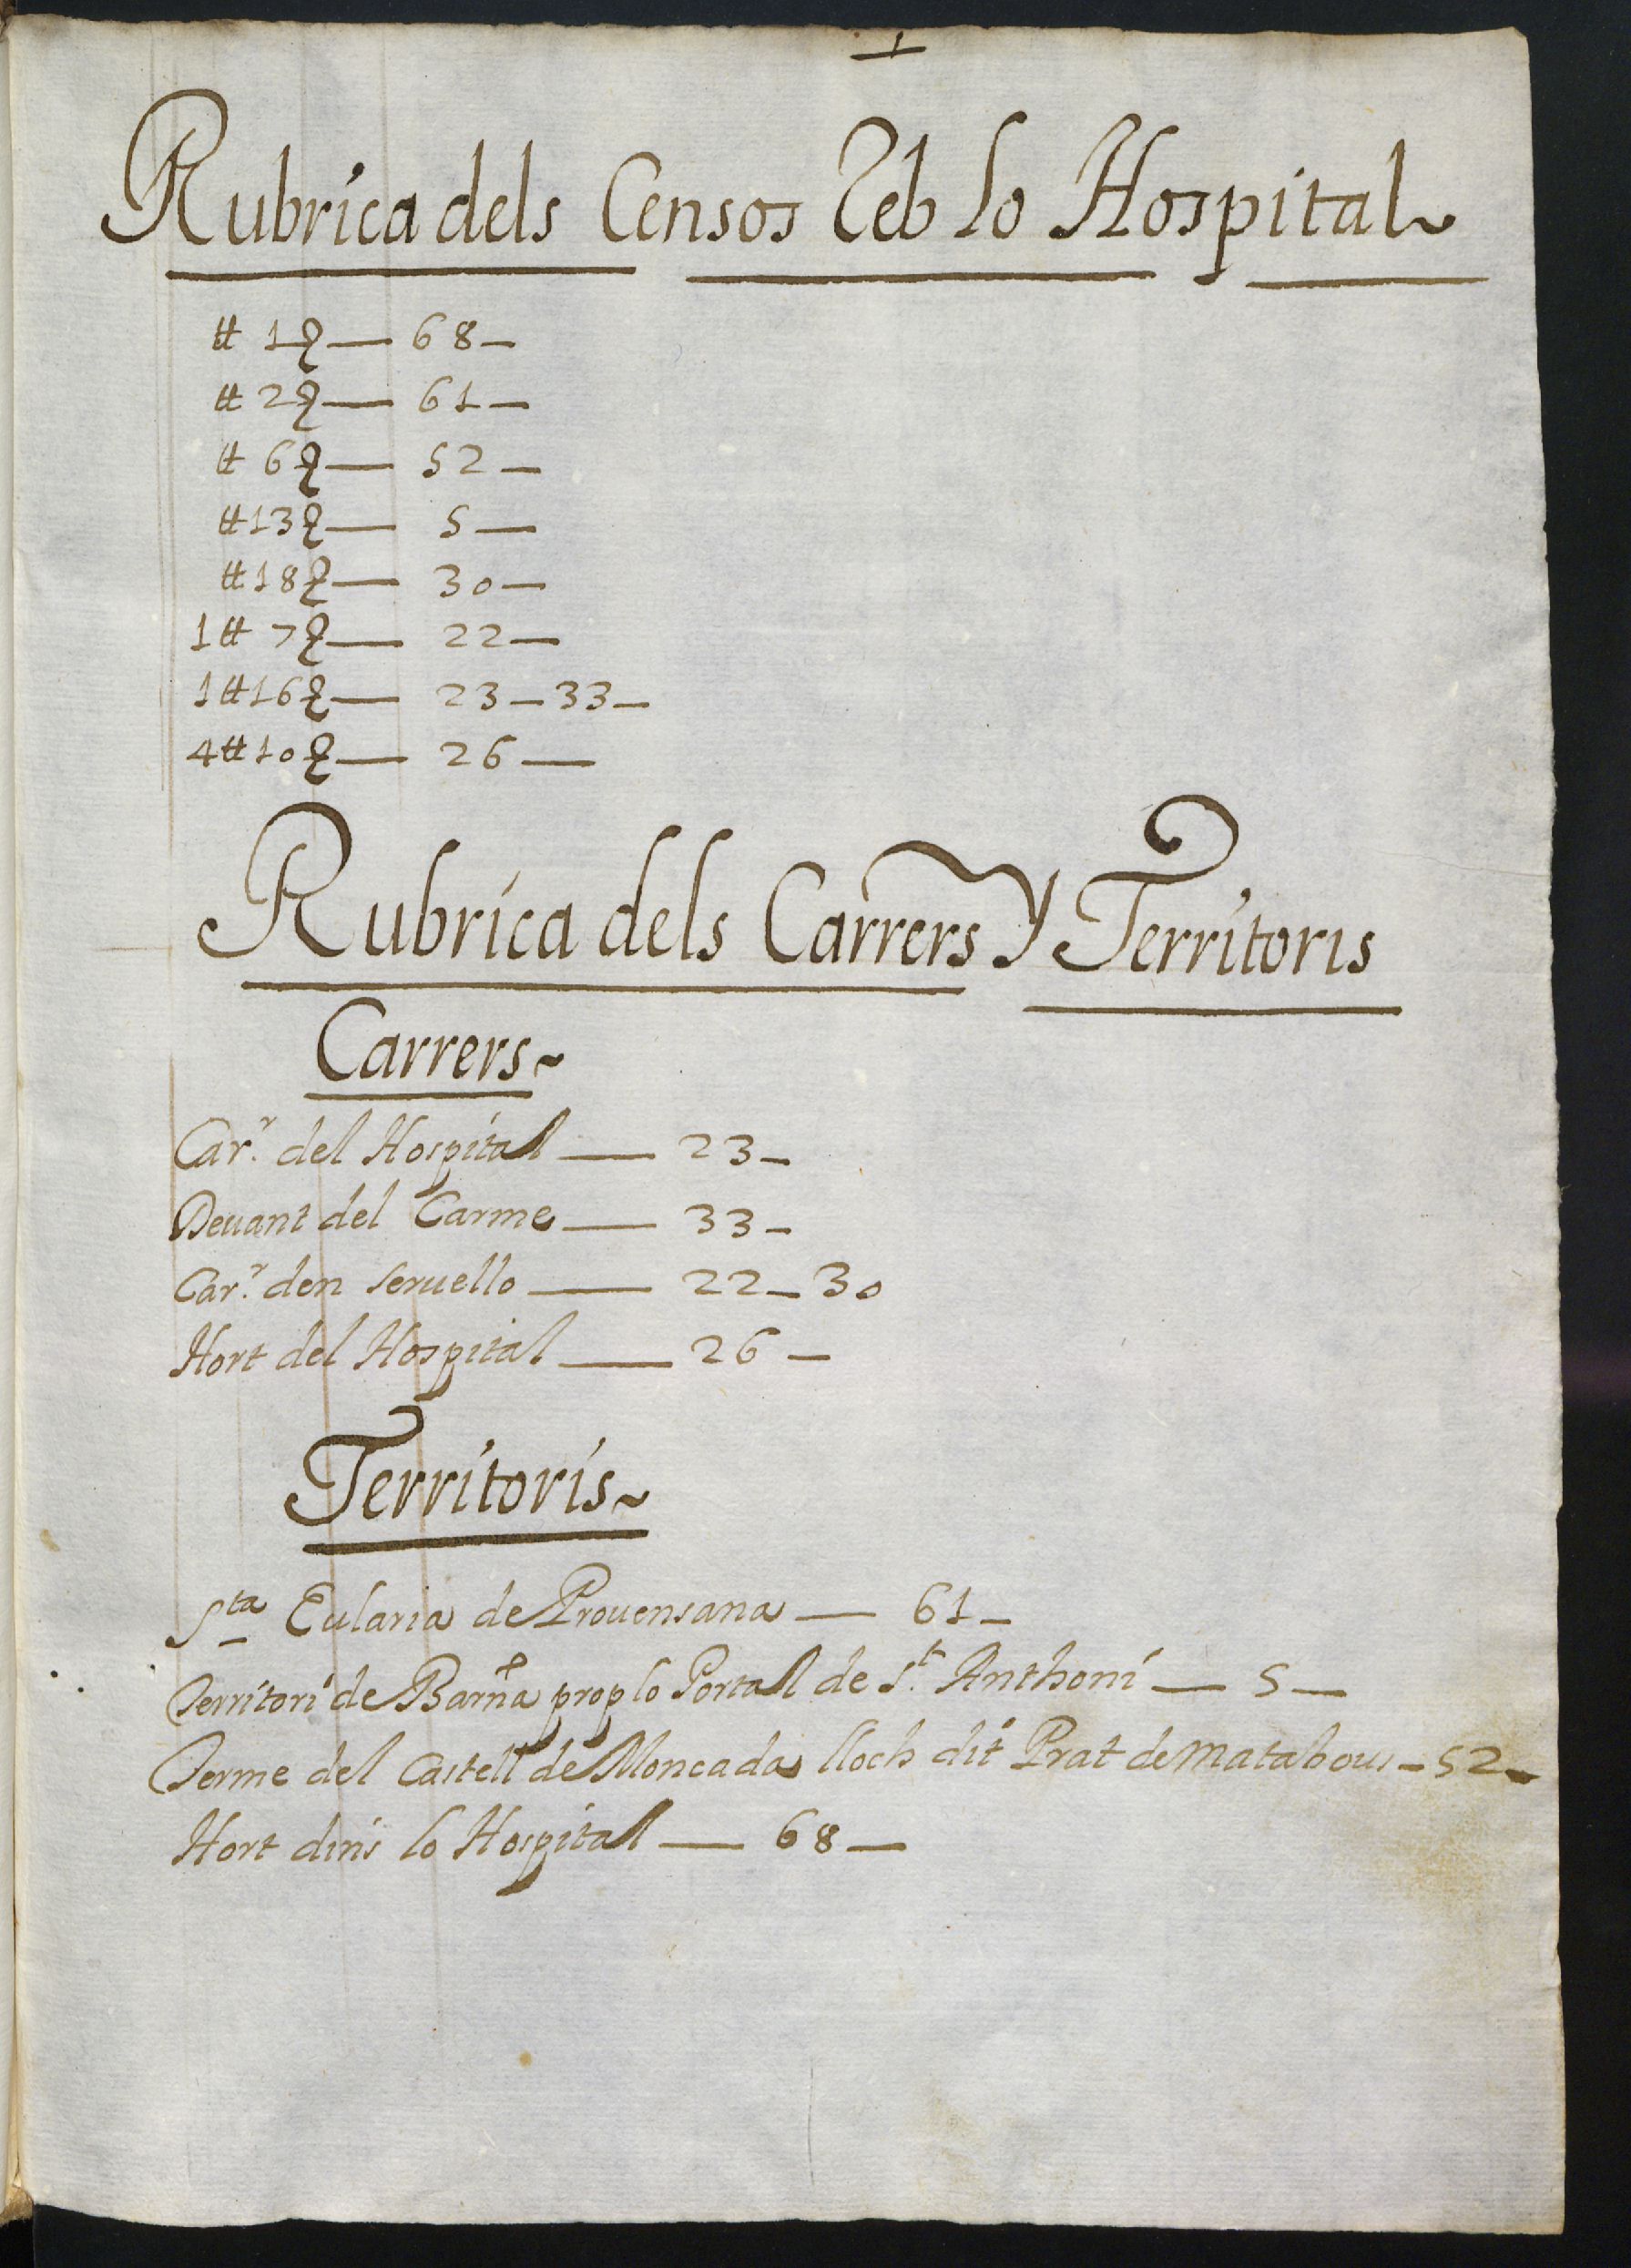 Rubrica dels Censos Reb lo Hospital
tt 1 ß — 68 —
tt 2 ß — 61 —
tt 6 ß — 52 —
tt 13 ß — 5 —
tt 18 ß — 30 —
1 tt 7 ß — 22 —
1 tt 16 ß — 23 — 33 —
4 tt 10 ß — 26 —
Rubrica dels Carrers Y Territoris
Carrers
Carʳ. del Hospital — 23 —
Deuant del Carme — 33 —
Carʳ. den Seruello — 22 — 30
Hort del Hospital — 26 —
Territoris
Sᵗᵃ Eularia de Prouensana — 61 —
Territori de Barn̄a prop lo Portal de Sᵗ. Anthoni — 5 —
Terme del Castell de Moncada lloch dit Prat de Matabous — 52 —
Hort dins lo Hospital — 68 —